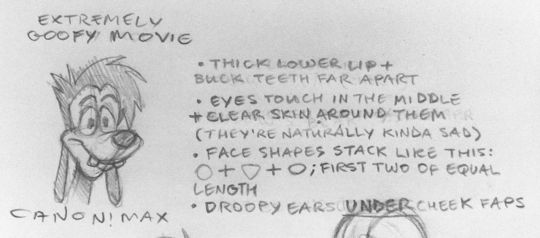 EXTREMELY
GOOFY MOVIE
• THICK LOWER LIP +
BUCK TEETH FAR APART
• EYES TOUCH IN THE MIDDLE
+ CLEAR SKIN AROUND THEM
(THEY'RE NATURALLY KINDA SAD)
• FACE SHAPES STACK LIKE THIS:
○ + ♡ + ○; FIRST TWO OF EQUAL
LENGTH
• DROOPY EARS UNDER CHEEK FAPS
CANON! MAX